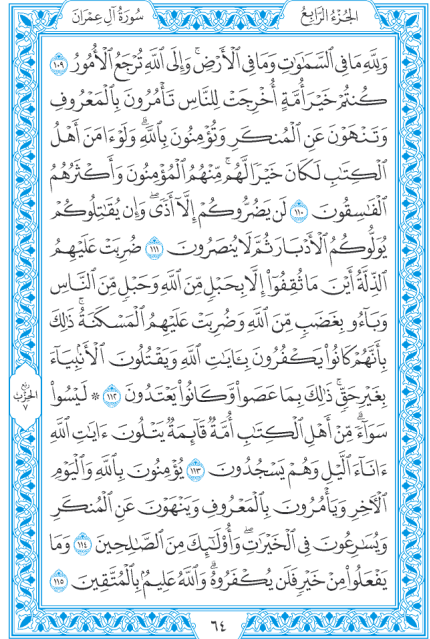 الجُزْءُ الرَّابِعُ
سُورَةُ آلِ عِمْرَانَ
وَلِلَّهِ مَا فِي ٱلسَّمَٰوَٰتِ وَمَا فِي ٱلْأَرْضِۚ وَإِلَى ٱللَّهِ تُرْجَعُ ٱلْأُمُورُ ١٠٩
كُنتُمْ خَيْرَ أُمَّةٍ أُخْرِجَتْ لِلنَّاسِ تَأْمُرُونَ بِٱلْمَعْرُوفِ
وَتَنْهَوْنَ عَنِ ٱلْمُنكَرِ وَتُؤْمِنُونَ بِٱللَّهِۗ وَلَوْ ءَامَنَ أَهْلُ
ٱلْكِتَٰبِ لَكَانَ خَيْرًا لَّهُمۚ مِّنْهُمُ ٱلْمُؤْمِنُونَ وَأَكْثَرُهُمُ
ٱلْفَٰسِقُونَ ١١٠ لَن يَضُرُّوكُمْ إِلَّآ أَذًىۖ وَإِن يُقَٰتِلُوكُمْ
يُوَلُّوكُمُ ٱلْأَدْبَارَ ثُمَّ لَا يُنصَرُونَ ١١١ ضُرِبَتْ عَلَيْهِمُ
ٱلذِّلَّةُ أَيْنَ مَا ثُقِفُوٓا۟ إِلَّا بِحَبْلٍ مِّنَ ٱللَّهِ وَحَبْلٍ مِّنَ ٱلنَّاسِ
وَبَآءُو بِغَضَبٍ مِّنَ ٱللَّهِ وَضُرِبَتْ عَلَيْهِمُ ٱلْمَسْكَنَةُۚ ذَٰلِكَ
بِأَنَّهُمْ كَانُوا۟ يَكْفُرُونَ بِـَٔايَٰتِ ٱللَّهِ وَيَقْتُلُونَ ٱلْأَنۢبِيَآءَ
بِغَيْرِ حَقٍّۚ ذَٰلِكَ بِمَا عَصَوا۟ وَّكَانُوا۟ يَعْتَدُونَ ١١٢ ۞ لَيْسُوا۟
سَوَآءًۗ مِّنْ أَهْلِ ٱلْكِتَٰبِ أُمَّةٌ قَآئِمَةٌ يَتْلُونَ ءَايَٰتِ ٱللَّهِ
ءَانَآءَ ٱلَّيْلِ وَهُمْ يَسْجُدُونَ ١١٣ يُؤْمِنُونَ بِٱللَّهِ وَٱلْيَوْمِ
ٱلْأٓخِرِ وَيَأْمُرُونَ بِٱلْمَعْرُوفِ وَيَنْهَوْنَ عَنِ ٱلْمُنكَرِ
وَيُسَٰرِعُونَ فِي ٱلْخَيْرَٰتِۖ وَأُو۟لَٰٓئِكَ مِنَ ٱلصَّٰلِحِينَ ١١٤ وَمَا
يَفْعَلُوا۟ مِنْ خَيْرٍ فَلَن يُكْفَرُوهُۗ وَٱللَّهُ عَلِيمٌۢ بِٱلْمُتَّقِينَ ١١٥
ربع
الحزب
٧
٦٤